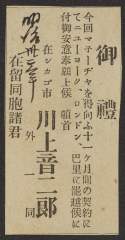 御禮
今回マ子ーヂャを得向ふ十一ヶ月間の契約に
てニューヨーク、ロンドン、巴里に罷越候に
付御安意奉願上候 頓首
在シカゴ市
川上音二郎
外一同
在留同胞諸君